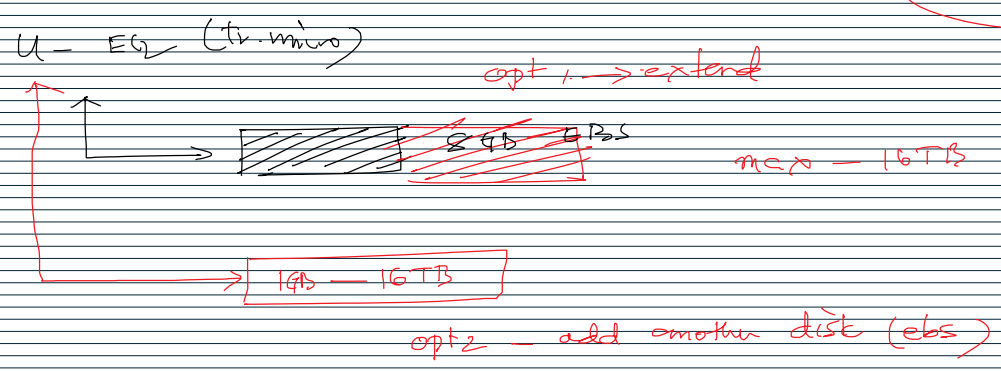 U - EC2 (t2.micro)
opt 1. → extend
8 GB EBS
max - 16TB
1GB - 16TB
opt2 - add another disk (ebs)